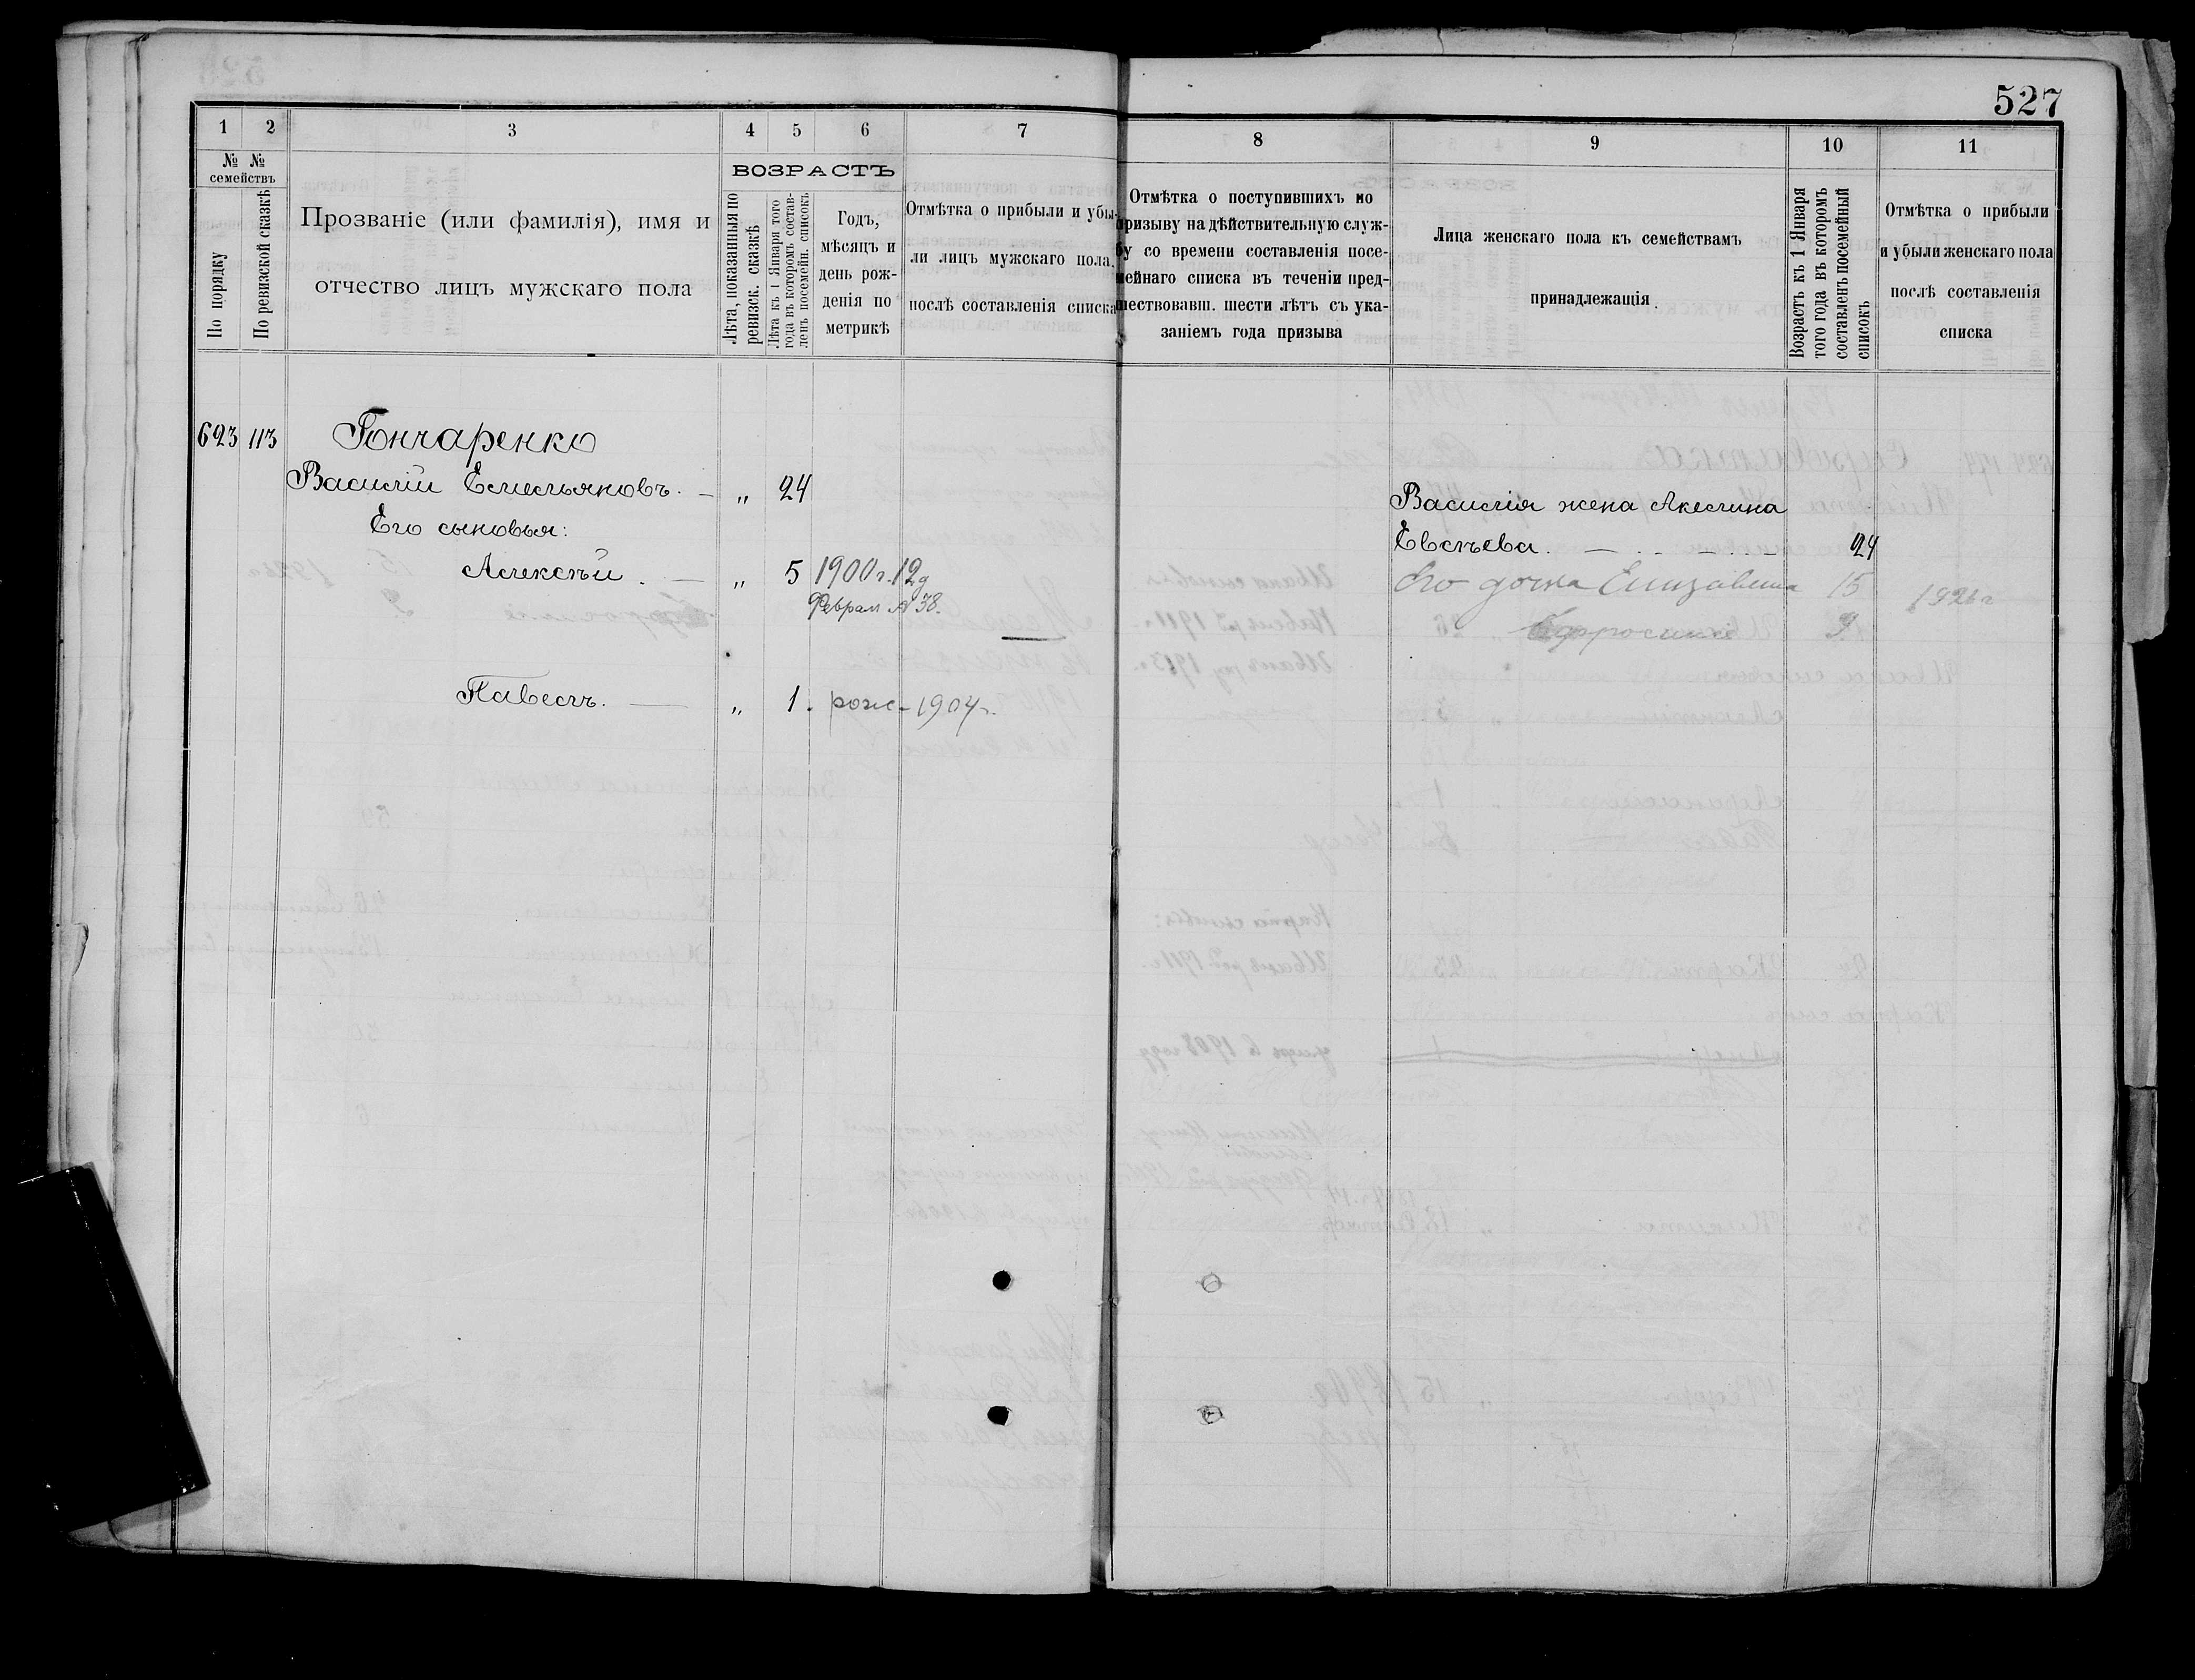 527
1 2 3 4 5 6 7
№ № семействъ
По порядку
По ревизской сказкѣ
Прозваніе (или фамилія), имя и
отчество лицъ мужскаго пола
ВОЗРАСТЪ
Лѣта, показанныя по
ревизск. сказкѣ
Лѣта къ 1 Января того
года въ которомъ состав-
ленъ посемейн. списокъ
Годъ,
мѣсяцъ и
день рож-
денія по
метрикѣ
Отмѣтка о прибыли и убы-
ли лицъ мужскаго пола.
послѣ составленія списка
8 9 10 11
Отмѣтка о поступившихъ по
призыву на дѣйствительную служ-
бу со времени составленія посе-
мейнаго списка въ теченіи пред-
шествовавш. шести лѣтъ съ ука-
заніемъ года призыва
Лица женскаго пола къ семействамъ
принадлежащія.
Возрастъ къ 1 Января
того года въ которомъ
составленъ посемейный
списокъ
Отмѣтка о прибыли
и убыли женскаго пола
послѣ составленія
списка
623 113 Гончаренко
Василій Емельяновъ. — „ 24
Его сыновья:
Алексѣй. — „ 5 1900 г. 12 д
Феврал № 38.
Павелъ. — „ 1. рож- 1904 г.
Василія жена Акелина
Евсѣева. — 24
Его дочка Елизавета 15 1926 г
Ефросинія 9